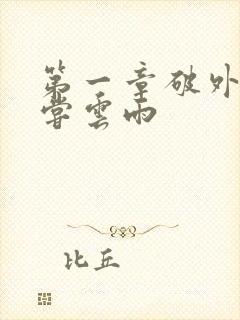 第一章破外
嘗雲雨
比丘